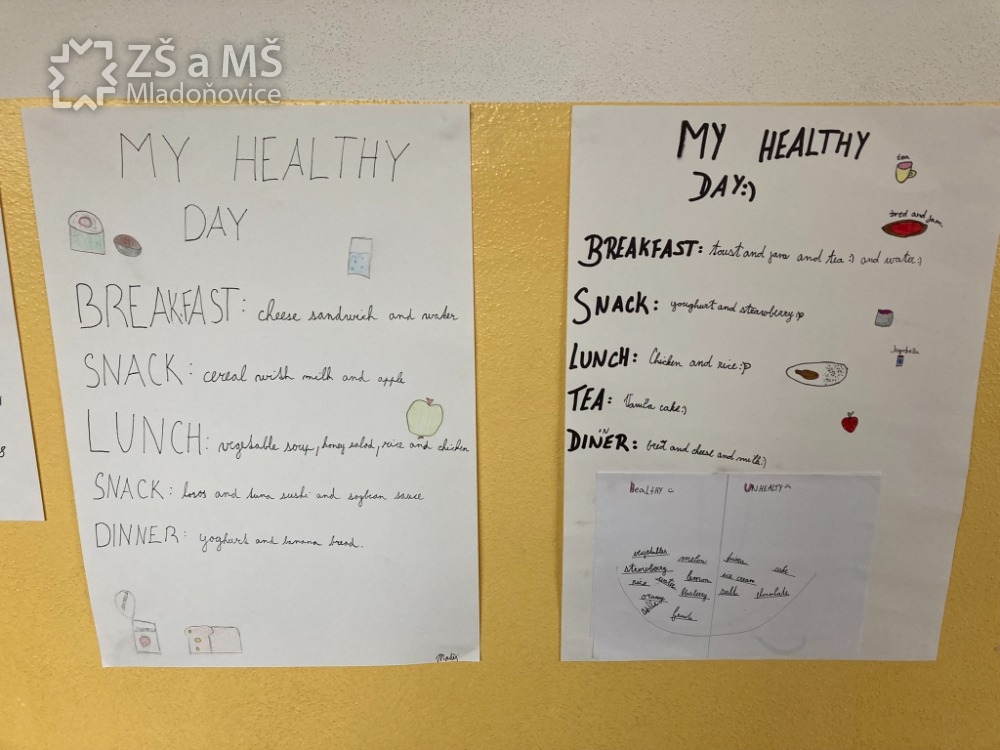 ZŠ a MŠ
Mladoňovice
MY HEALTHY
DAY
BREAKFAST: cheese sandwich and water
SNACK: cereal with milk and apple
LUNCH: vegetable soup, honey salad, rice and chicken
SNACK: losos and tuna sushi and soybean sauce
DINNER: yoghurt and banana bread.
MY HEALTHY
DAY:)
tea
bred and jam
BREAKFAST: toust and jam and tea :) and water:)
SNACK: youghurt and strawberry:p
LUNCH: Chicken and rice:P
TEA: Vanila cake:)
DINNER: bret and cheese and milk:)
HEALTHY
UNHEALTY
vegetables
melon
strawberry
rice
water
lemon
orange
blueberry
ice cream
cake
salt
chocolate